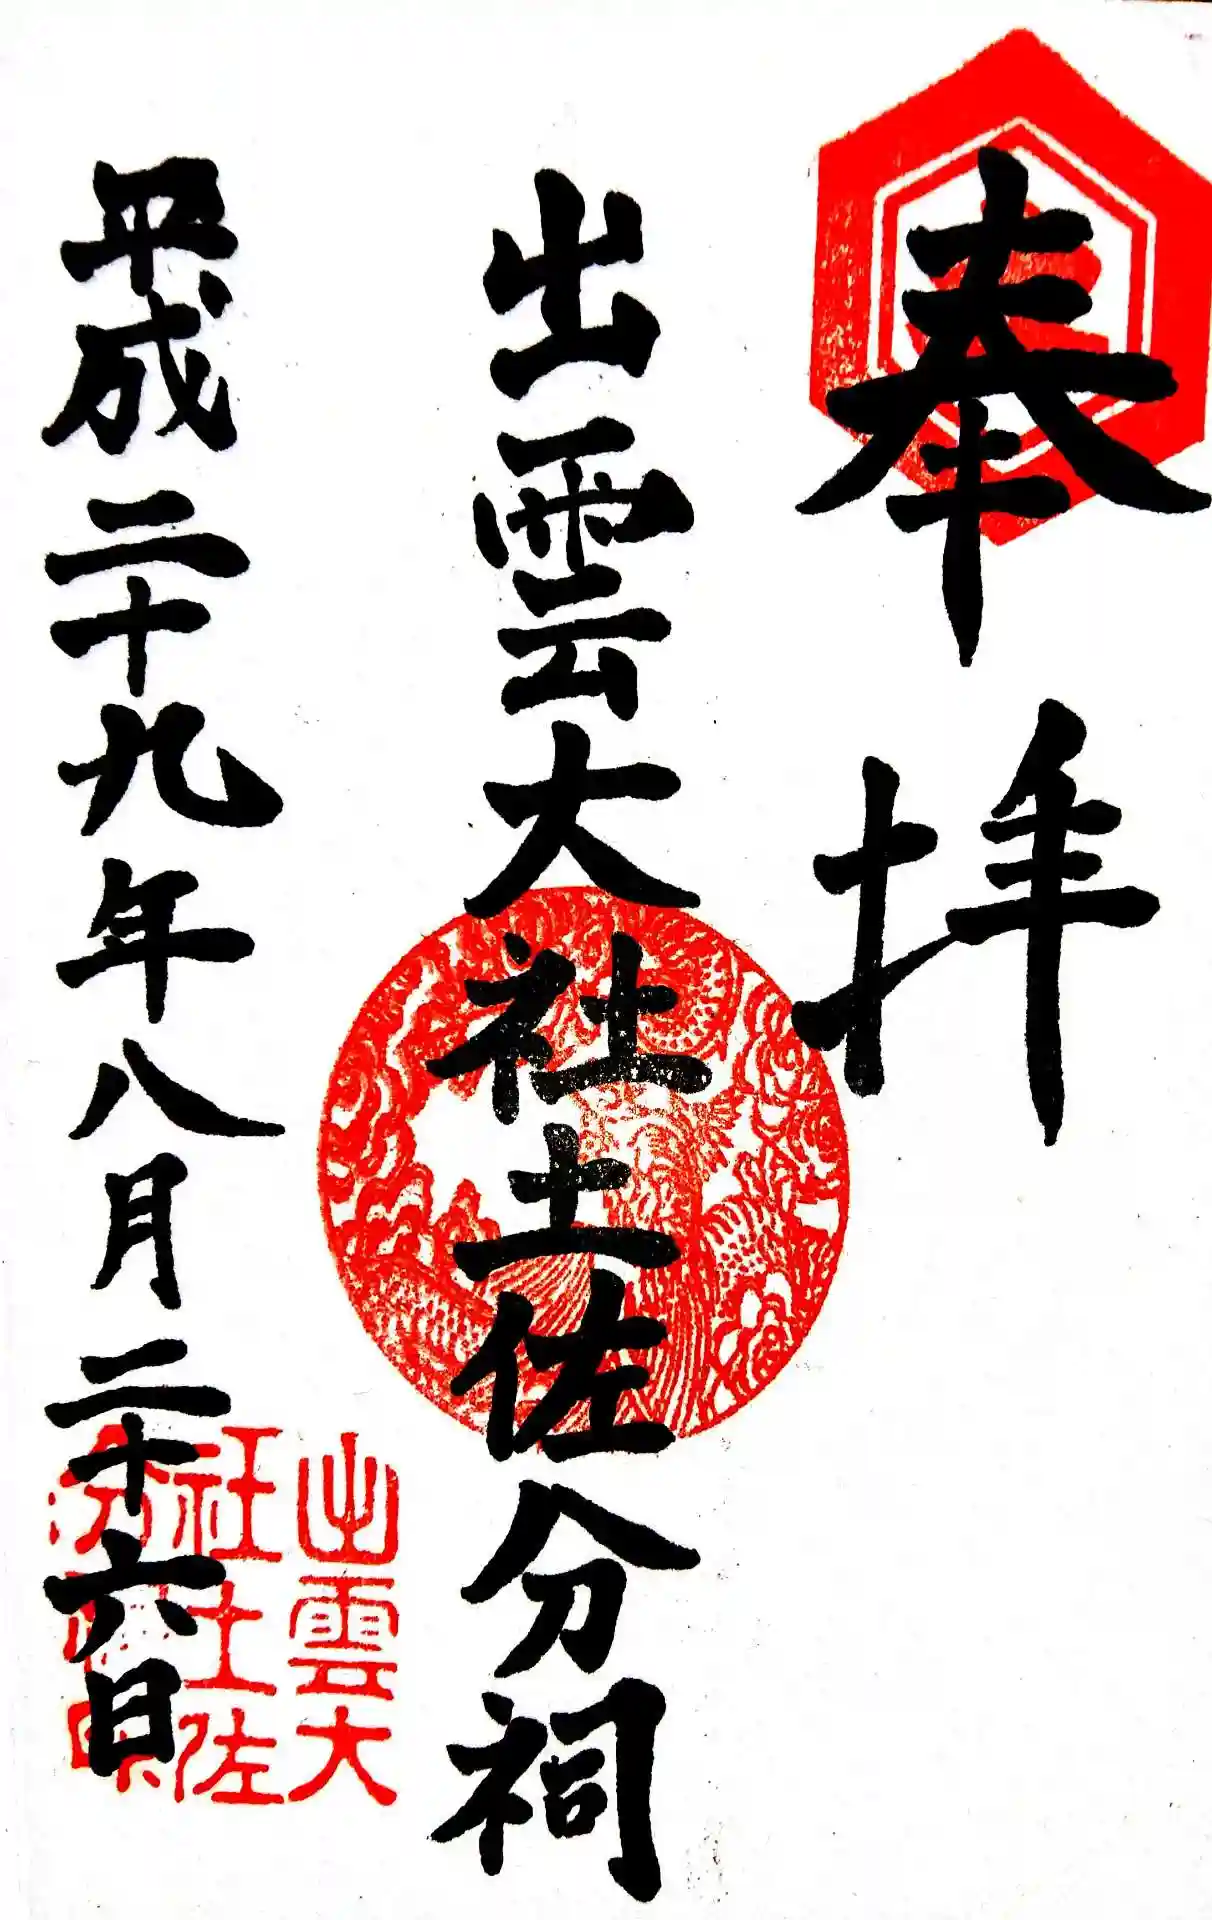 奉拝
出雲大社土佐分祠
平成二十九年八月二十六日
出雲大
社土佐
分